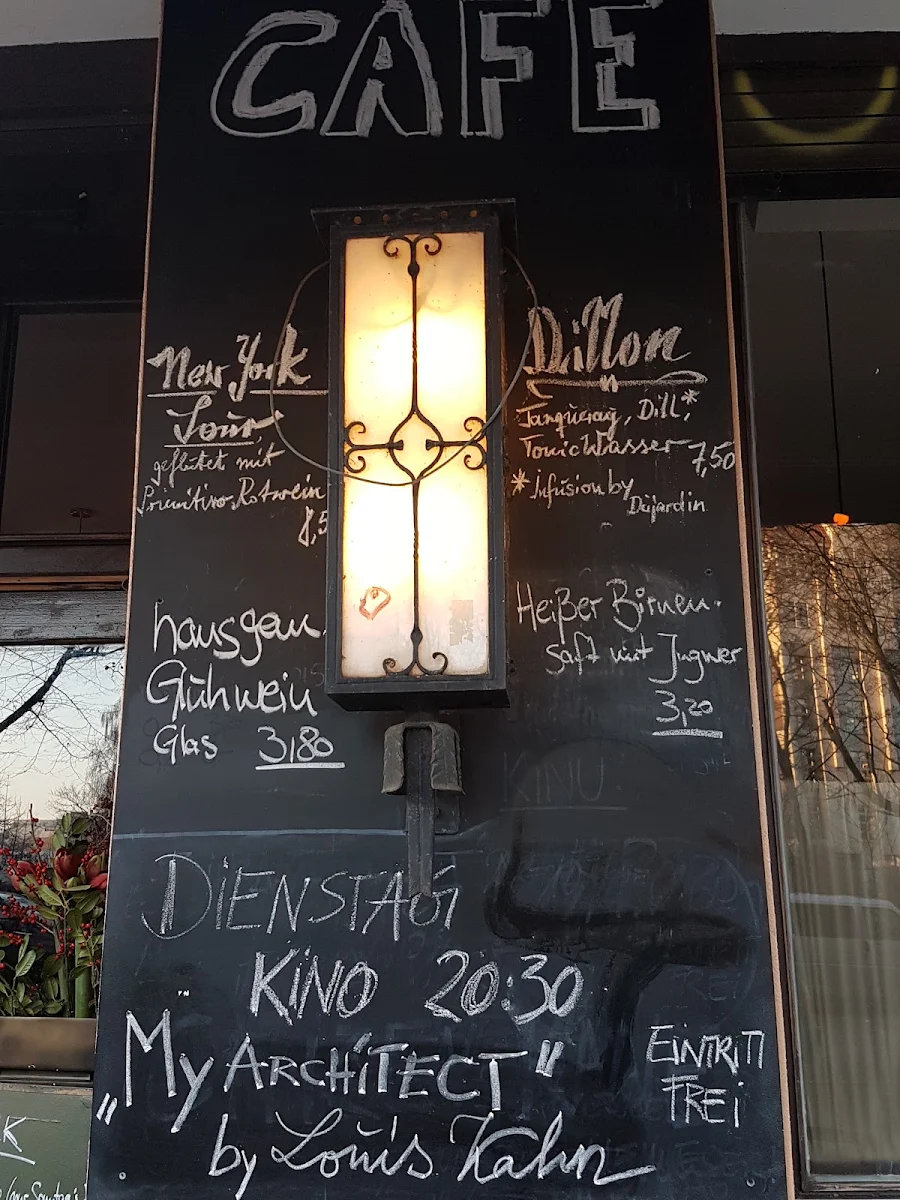 CAFE
New York
Sour
geflutet mit
Primitivo Rotwein
8,5
Dillon
Tanqueray, Dill*,
Tonic Wasser 7,50
*Infusion by
Dujardin
hausgem.
Glühwein
Glas 3,80
Heißer Birnen-
saft mit Ingwer
3,20
KINO
DIENSTAG
KINO 20:30
„My ARCHITECT"
by Louis Kahn
EINTRITT
FREI